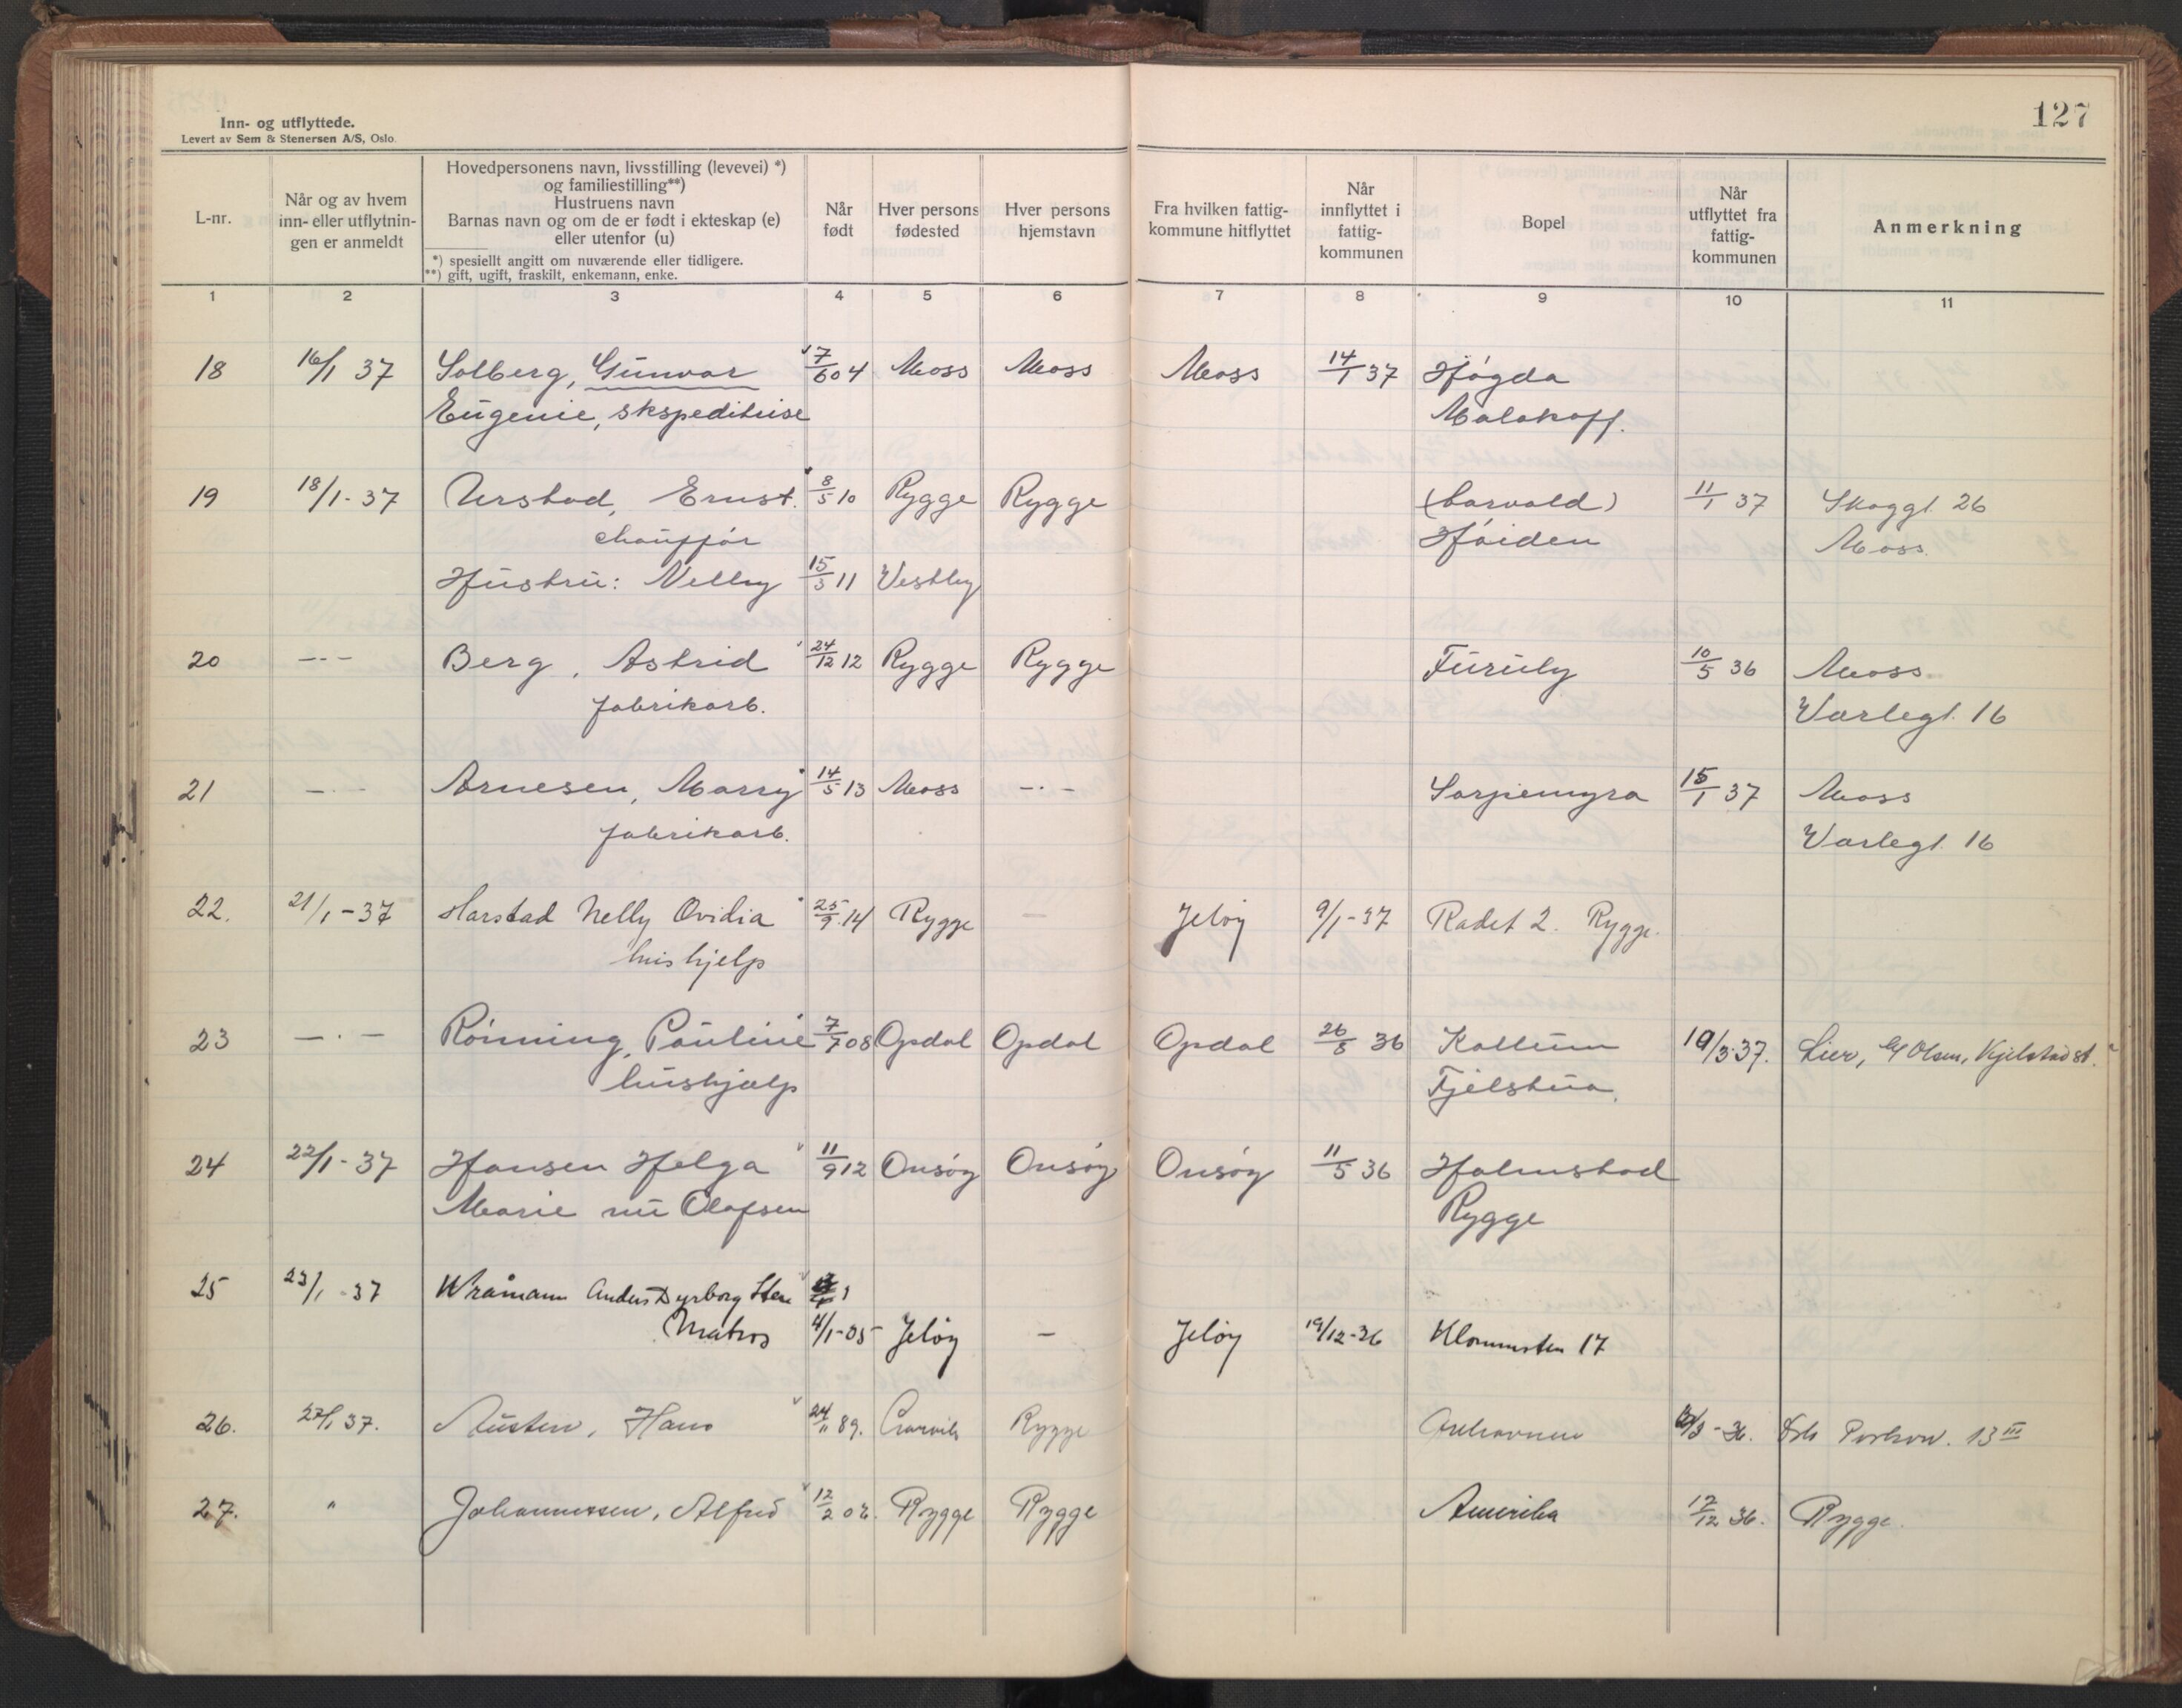 127
Inn- og utflyttede.
Levert av Sem & Stenersen A/S, Oslo.
L-nr.
Når og av hvem
inn- eller utflytnin-
gen er anmeldt
Hovedpersonens navn, livsstilling (levevei) *)
og familiestilling**)
Hustruens navn
Barnas navn og om de er født i ekteskap (e)
eller utenfor (u)
*) spesiellt angitt om nuværende eller tidligere.
**) gift, ugift, fraskilt, enkemann, enke.
Når
født
Hver persons
fødested
Hver persons
hjemstavn
Fra hvilken fattig-
kommune hitflyttet
Når
innflyttet i
fattig-
kommunen
Bopel
Når
utflyttet fra
fattig-
kommunen
Anmerkning
1 2 3 4 5 6 7 8 9 10 11
18 16/1 37 Solberg, Gunvor 7/6 04 Moss Moss Moss 14/1 37 Høgda
Eugenie, ekspeditrise Malakoff.
19 18/1-37 Urstad, Ernst. 8/5 10 Rygge Rygge (Carvald) 11/1 37 Skoggt. 26
chauffør Høiden Moss.
Hustru: Nelly 15/3 11 Vestby
20 -·- Berg, Astrid 24/12 12 Rygge Rygge Furuly 10/5 36 Moss
fabrikarb. Varlegt. 16
21 -·- Arnesen, Marry 14/5 13 Moss -·- Sarpiemyra 15/1 37 Moss
fabrikarb. Varlegt. 16
22. 21/1-37 Harstad Nelly Ovidia 25/9.14 Rygge - Jeløy 9/1-37 Radet 2. Rygge.
hushjelp
23 -·- Rønning, Pauline 7/7 08 Opdal Opdal Opdal 26/8 36 Kallum 19/3-37. Lier, Olsen, Kjelstad st.
hushjælp Fjelstua.
24 22/1-37 Hansen Helga 11/9 12 Onsøy Onsøy Onsøy 11/5 36 Halmstad
Marie nu Olafsen Rygge
25 23/1-37 Wråmann Anders Dyrborg
Matros 4/1-05 Jeløy - Jeløy 19/12-36 Klommsten 17
26. 27/1 37. Austen, Hans 24/11 89. Rygge /3-36. 13 III
27. " Johannessen, Alfred 12/2 02. Rygge Rygge Amerika 12/12 36. Rygge.